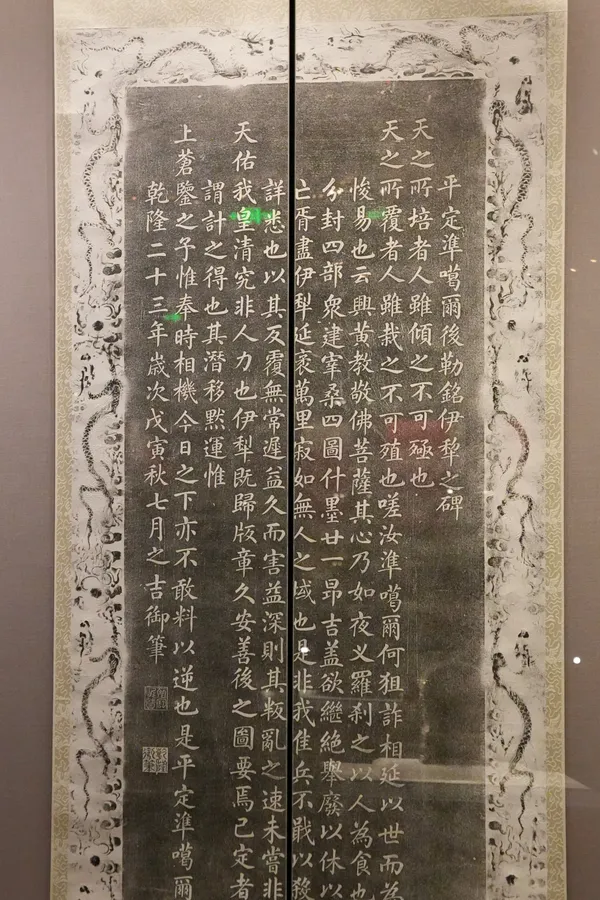 平定準噶爾後勒銘伊犁之碑
天之所培者人雖傾之不可殛也
天之所覆者人雖栽之不可殖也嗟汝準噶爾何狙詐相延以世而為
悛易也云興黃教敬佛菩薩其心乃如夜义羅刹之以人為食也
分封四部衆建宰桑四圖什墨廿一昻吉盖欲繼絶舉廢以休以
亡胥盡伊犁延袤萬里寂如無人之域也是非我佳兵不戢以殺
詳悉也以其反覆無常遲益久而害益深則其叛亂之速未嘗非
天佑我皇清究非人力也伊犁既歸版章久安善後之圖要焉已定者
謂計之得也其潛移黙運惟
上蒼鑒之予惟奉時相機今日之下亦不敢料以逆也是平定準噶爾
乾隆二十三年歲次戊寅秋七月之吉御筆